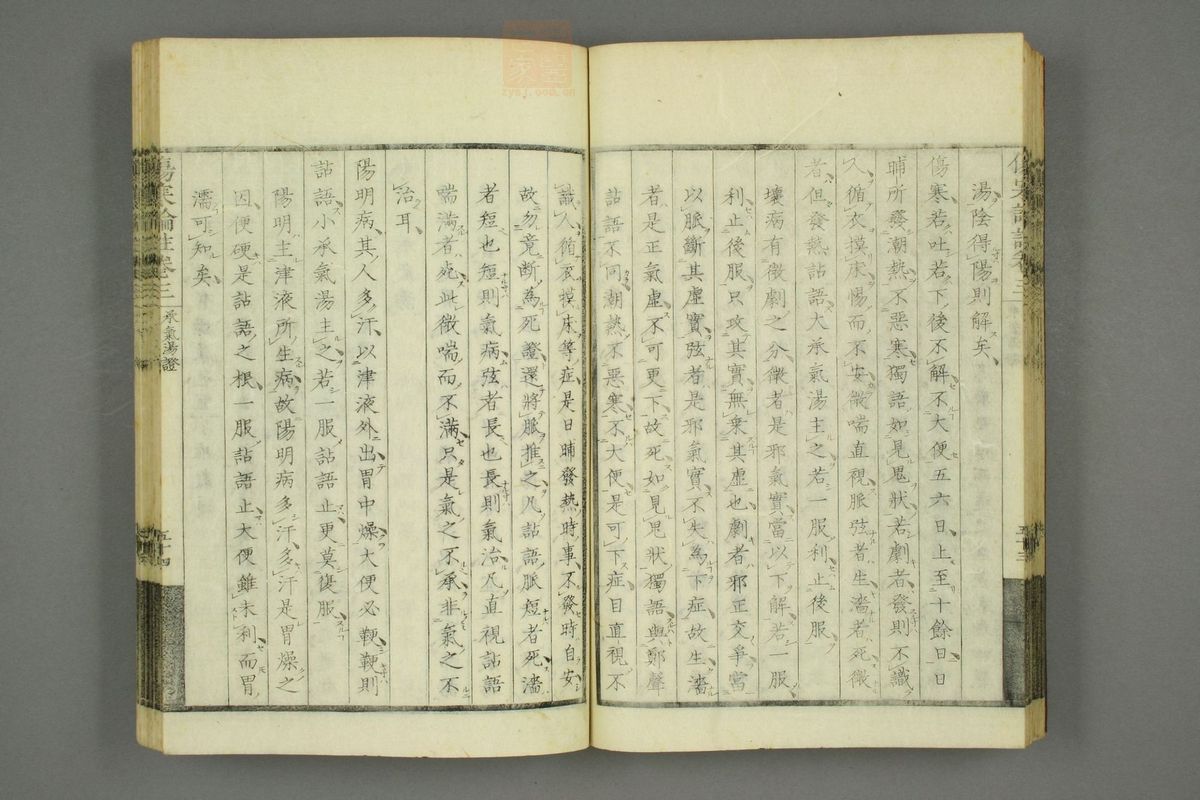 湯陰得陽則解矣
傷寒若吐若下後不解不大便五六日上至十餘日日
晡所發潮熱不惡寒獨語如見鬼狀若劇者發則不識
人循衣摸床惕而不安微喘直視脈弦者生濇者死微
者但發熱詀語大承氣湯主之若一服利止後服
壞病有微劇之分微者是邪氣實當以下解若一服
利止後服只攻其實無乗其虛也劇者邪正交爭當
以脈斷其虛實弦者是邪氣實不失為下症故生濇
者是正氣虛不可更下故死如見鬼狀獨語與鄭聲
詀語不同潮熱不惡寒不大便是可下症目直視不
識人循衣摸床等症是日晡發熱時事不發時自安
故勿竟斷為死證還將脈推之凡詀語脈短者死濇
者短也短則氣病弦者長也長則氣治凡直視詀語
喘滿者死此微喘而不滿只是氣之不承非氣之不
治耳
陽明病其人多汗以津液外出胃中燥大便必鞕鞕則
詀語小承氣湯主之若一服詀語止更莫復服
陽明主津液所生病故陽明病多汗多汗是胃燥之
因便硬是詀語之根一服詀語止大便雖未利而胃
濡可知矣
傷寒論註卷三
承氣湯證
五十四